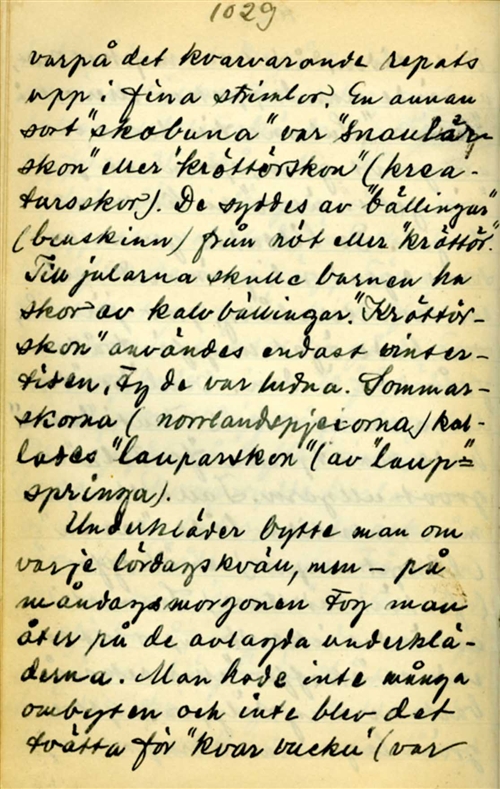 1029
varpå det kvarvarande repats
upp i fina strimlor. En annan
sort "skobuna" var "Snaulår-
skon" eller "kröttörskon" (krea-
tursskor). De syddes av "bällingar"
(benskinn) från nöt eller "kröttör".
Till jularna skulle barnen ha
skor av kalvbällingar. "Kröttör-
skon" användes endast vinter-
tiden, ty de var ludna. Sommar-
skorna (norrlandspjexorna) kal-
lades "lauparskon" (av "laup" =
springa).
Underkläder bytte man om
varje lördagskväll, men – på
måndagsmorgonen tog man
åter på de avlagda underklä-
derna. Man hade inte många
ombyten och inte blev det
tvätta för "kvar vecku" (var